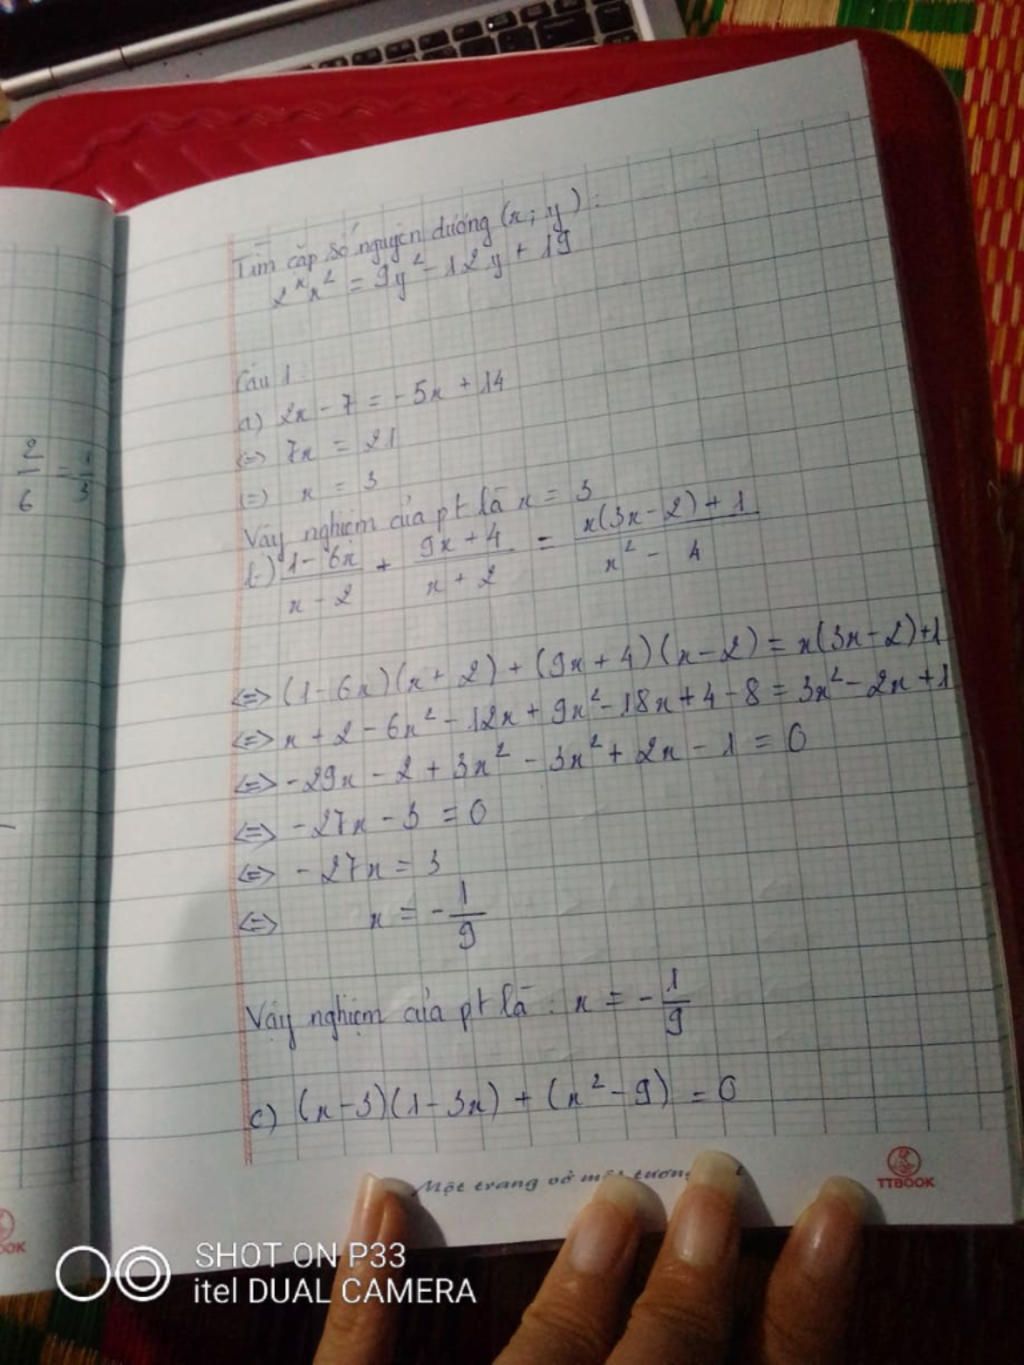 2/6 = 1/3
Tìm cặp số nguyên dương (x; y) :
2^x x² = 9y² - 12y + 19
Câu 1:
a) 2x - 7 = -5x + 14
(=) 7x = 21
(=) x = 3
Vậy nghiệm của pt là x = 3
b) (1 - 6x)/(x - 2) + (9x + 4)/(x + 2) = (x(3x - 2) + 1)/(x² - 4)
<=> (1 - 6x)(x + 2) + (9x + 4)(x - 2) = x(3x - 2) + 1
<=> x + 2 - 6x² - 12x + 9x² - 18x + 4 - 8 = 3x² - 2x + 1
<=> -29x - 2 + 3x² - 3x² + 2x - 1 = 0
<=> -27x - 3 = 0
<=> -27x = 3
<=> x = -1/9
Vậy nghiệm của pt là : x = -1/9
c) (x - 3)(1 - 3x) + (x² - 9) = 0
Một trang vở một tương
TTBOOK
SHOT ON P33
itel DUAL CAMERA